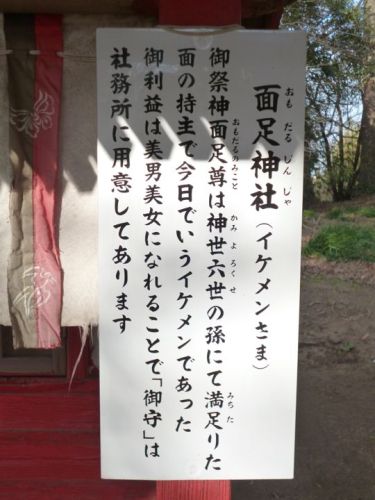 面足神社（イケメンさま）
おもだるじんじゃ
御祭神面足尊は神世六世の孫にて満足りた
おもだるのみこと
かみよろくせ
みちた
面の持主で今日でいうイケメンであった
御利益は美男美女になれることで「御守」は
社務所に用意してあります